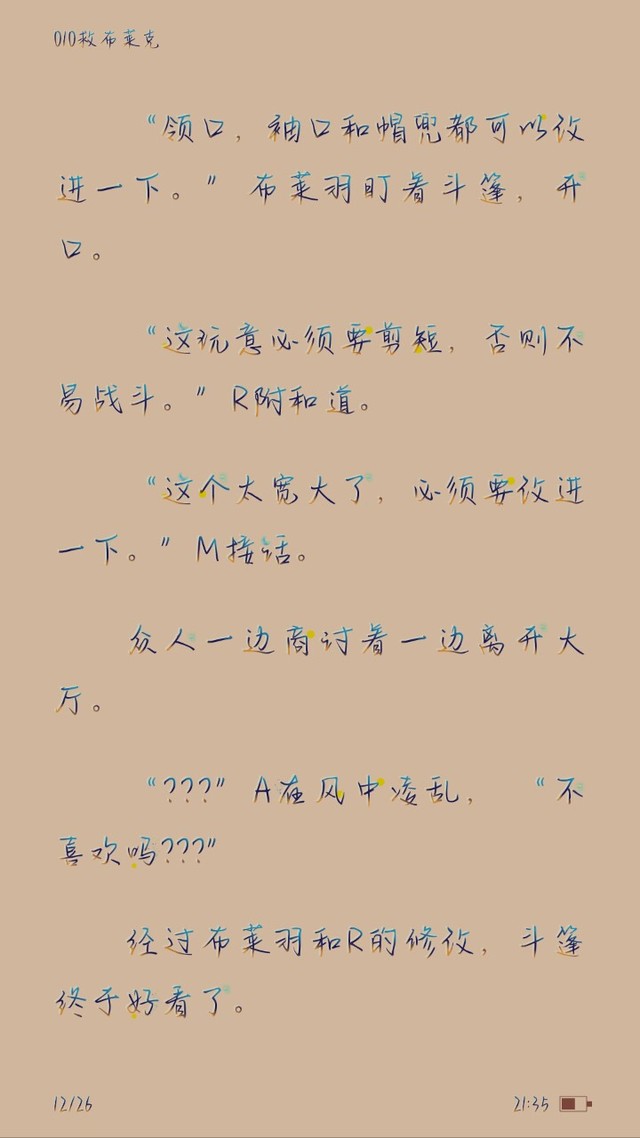 010救布莱克
“领口，袖口和帽兜都可以改
进一下。”布莱羽盯着斗篷，开
口。
“这玩意必须要剪短，否则不
易战斗。”R附和道。
“这个太宽大了，必须要改进
一下。”M接话。
众人一边商讨着一边离开大
厅。
“???”A在风中凌乱，“不
喜欢吗???”
经过布莱羽和R的修改，斗篷
终于好看了。
12/26
21:35